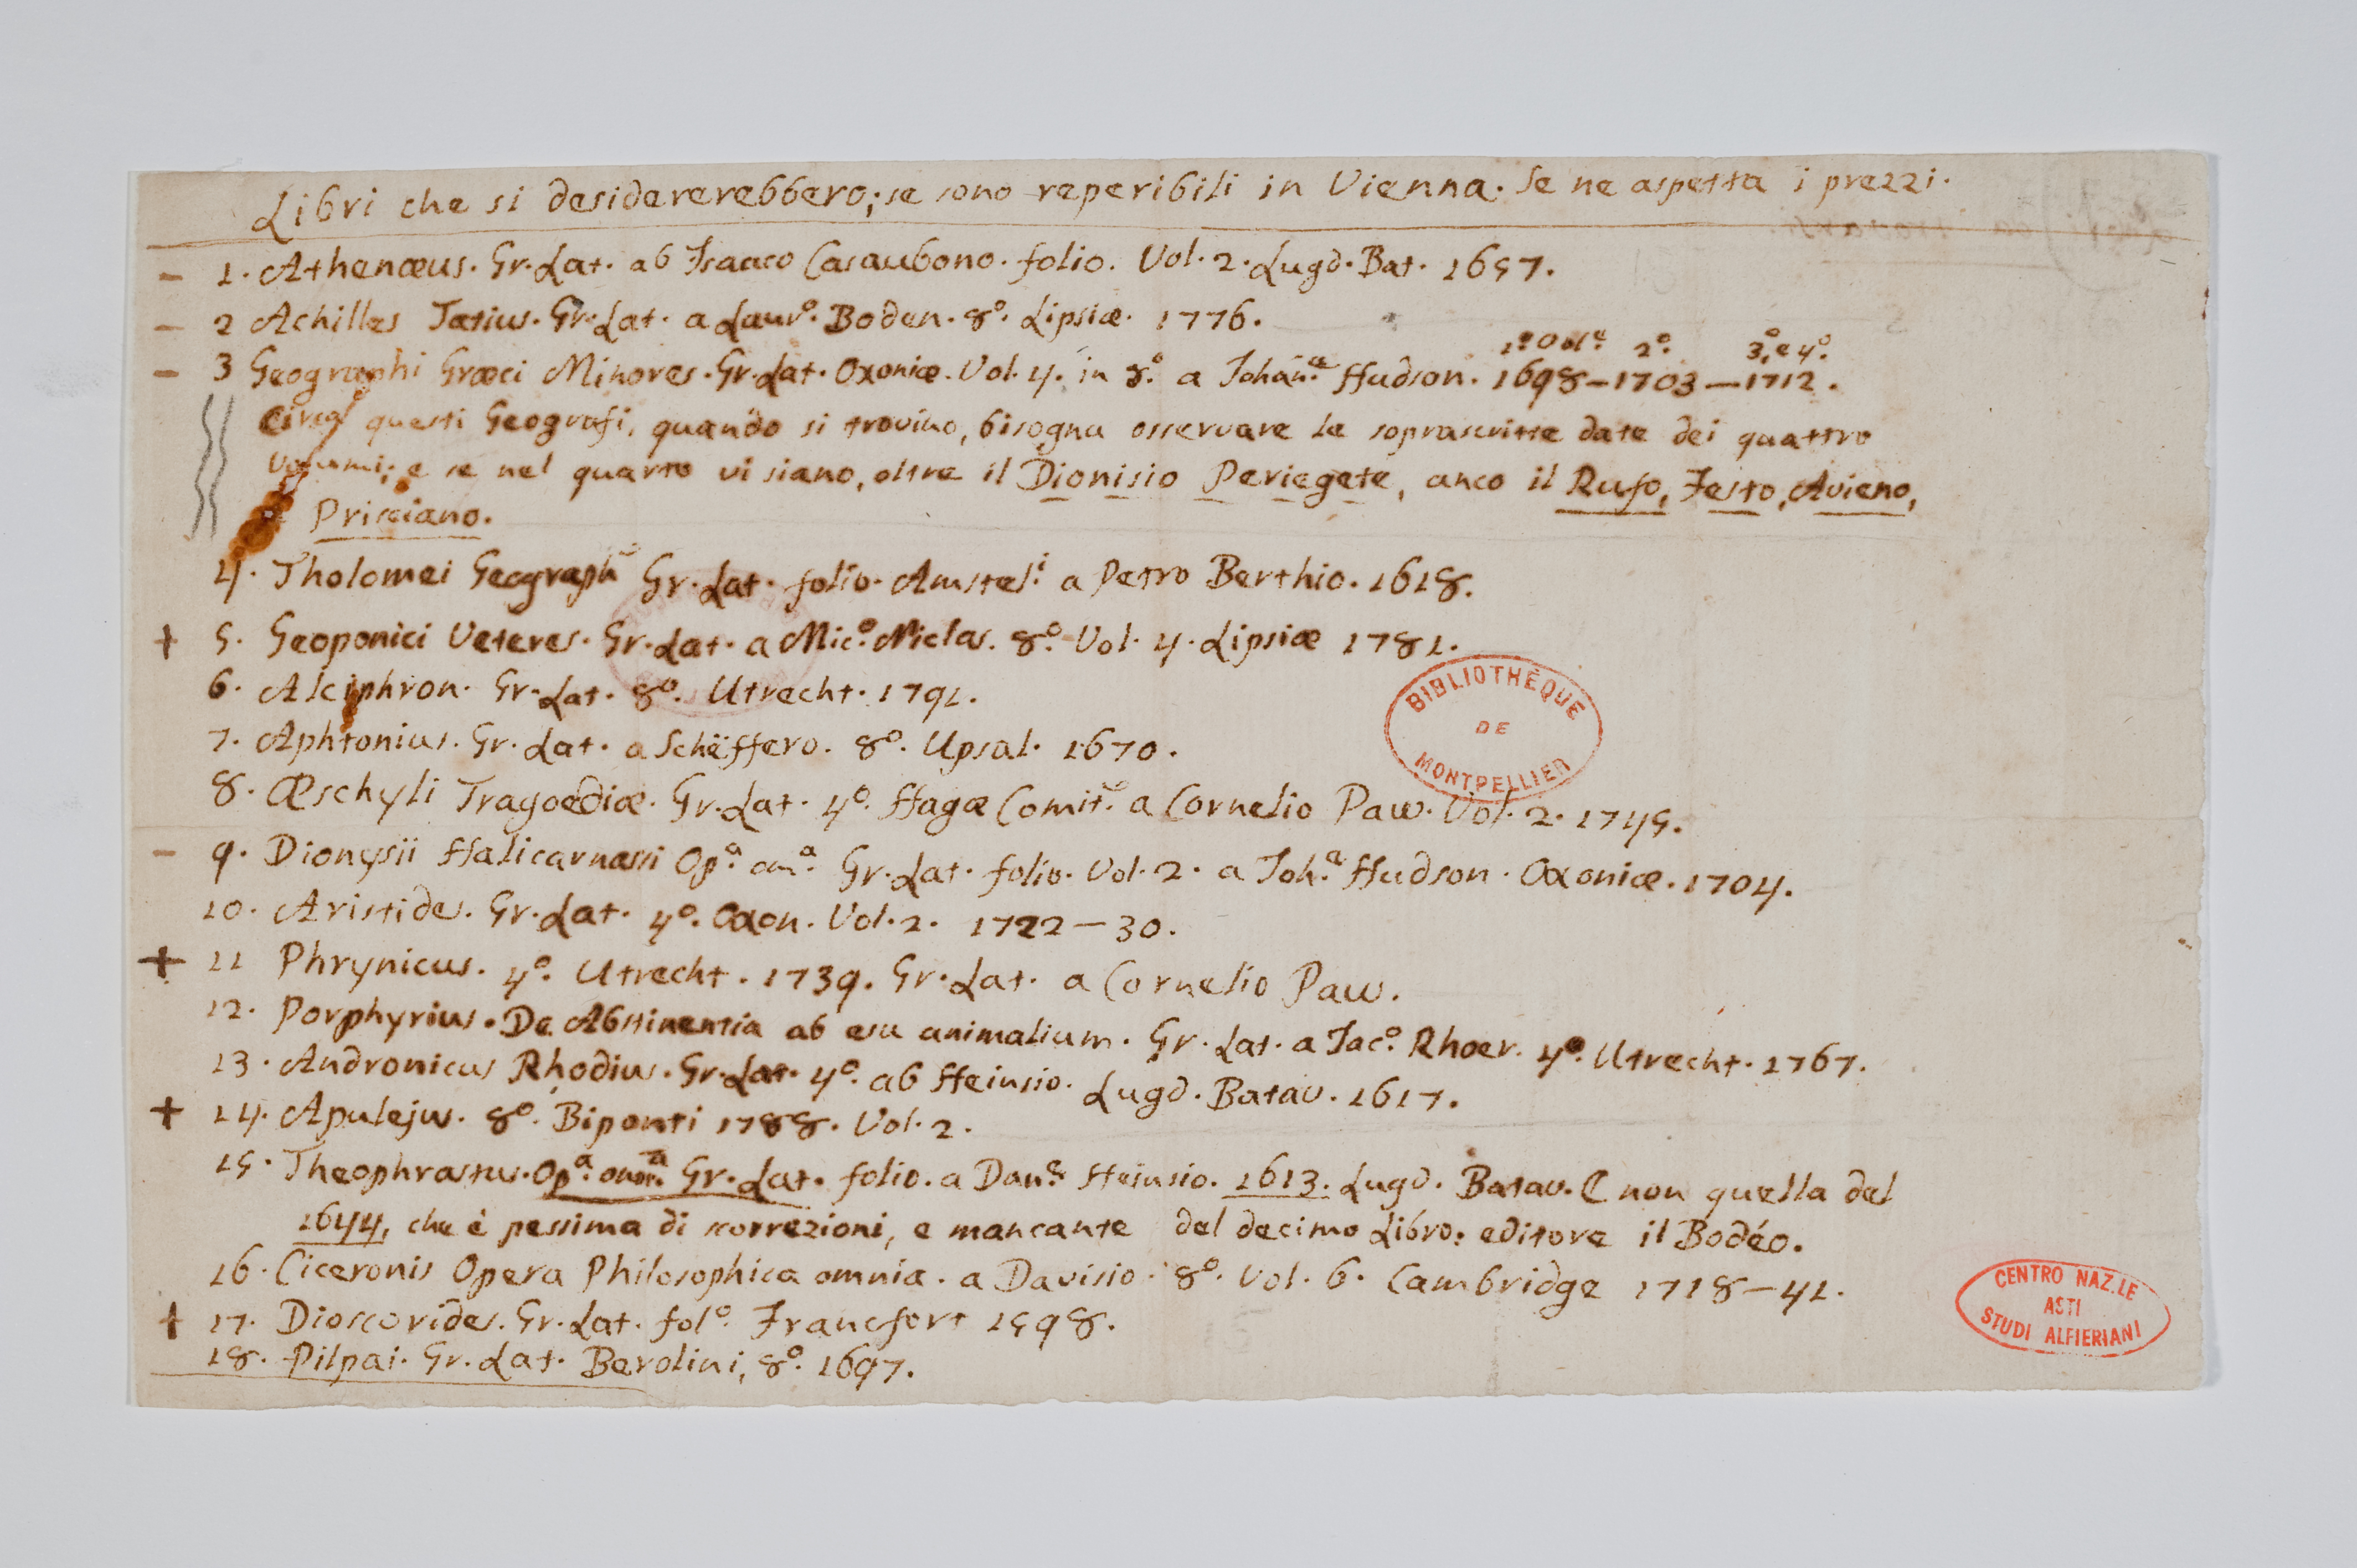 Libri che si desidererebbero; se sono reperibili in Vienna. Se ne aspetta i prezzi.
– 1. Athenæus. Gr. Lat. ab Isaaco Casaubono. folio. Vol. 2. Lugd. Bat. 1657.
– 2 Achilles Tatius. Gr. Lat. a Laur.º Boden. 8º. Lipsiæ. 1776.
1º. Vol.e 2º. 3º, e 4º.
– 3 Geographi Græci Minores. Gr. Lat. Oxoniæ. Vol. 4. in 8º. a Johan.e Hudson. 1698–1703–1712.
Circa questi Geografi, quando si trovino, bisogna osservare le soprascritte date dei quattro
Volumi; e se nel quarto vi siano, oltre il Dionisio Periegete, anco il Rufo, Festo, Avieno,
e Prisciano.
4. Tholomei Geograph Gr. Lat. folio. Amstel.i a Petro Berthio. 1618.
+ 5. Geoponici Veteres. Gr. Lat. a Nic.º Niclas. 8º. Vol. 4. Lipsiæ 1781.
6. Alciphron. Gr. Lat. 8º. Utrecht. 1791.
7. Aphtonius. Gr. Lat. a Schëffero. 8º. Upsal. 1670.
8. Æschyli Tragoediæ. Gr. Lat. 4º. Hagæ Comit. a Cornelio Paw. Vol. 2. 1745.
– 9. Dionysii Halicarnassi Op.a om.a Gr. Lat. folio. Vol. 2. a Joh.e Hudson. Oxoniæ. 1704.
10. Aristides. Gr. Lat. 4º. Oxon. Vol. 2. 1722–30.
+ 11 Phrynicus. 4º. Utrecht. 1739. Gr. Lat. a Cornelio Paw.
12. Porphyrius. De Abstinentia ab esu animalium. Gr. Lat. a Jac.º Rhoer. 4º. Utrecht. 1767.
13. Andronicus Rhodius. Gr. Lat. 4º. ab Heinsio. Lugd. Batav. 1617.
+ 14. Apulejus. 8º. Biponti 1788. Vol. 2.
15. Theophrastus. Op.a omn.a Gr. Lat. folio. a Dan.e Heinsio. 1613. Lugd. Batav. E non quella del
1644, che è pessima di scorrezioni, e mancante del decimo Libro: editore il Bodéo.
16. Ciceronis Opera Philosophica omnia. a Davisio. 8º. Vol. 6. Cambridge 1718–41.
+ 17. Dioscorides. Gr. Lat. fol.º Francfort 1598.
18. Pilpai. Gr. Lat. Berolini, 8º. 1697.
BIBLIOTHÈQUE
DE
MONTPELLIER
CENTRO NAZ.LE
ASTI
STUDI ALFIERIANI